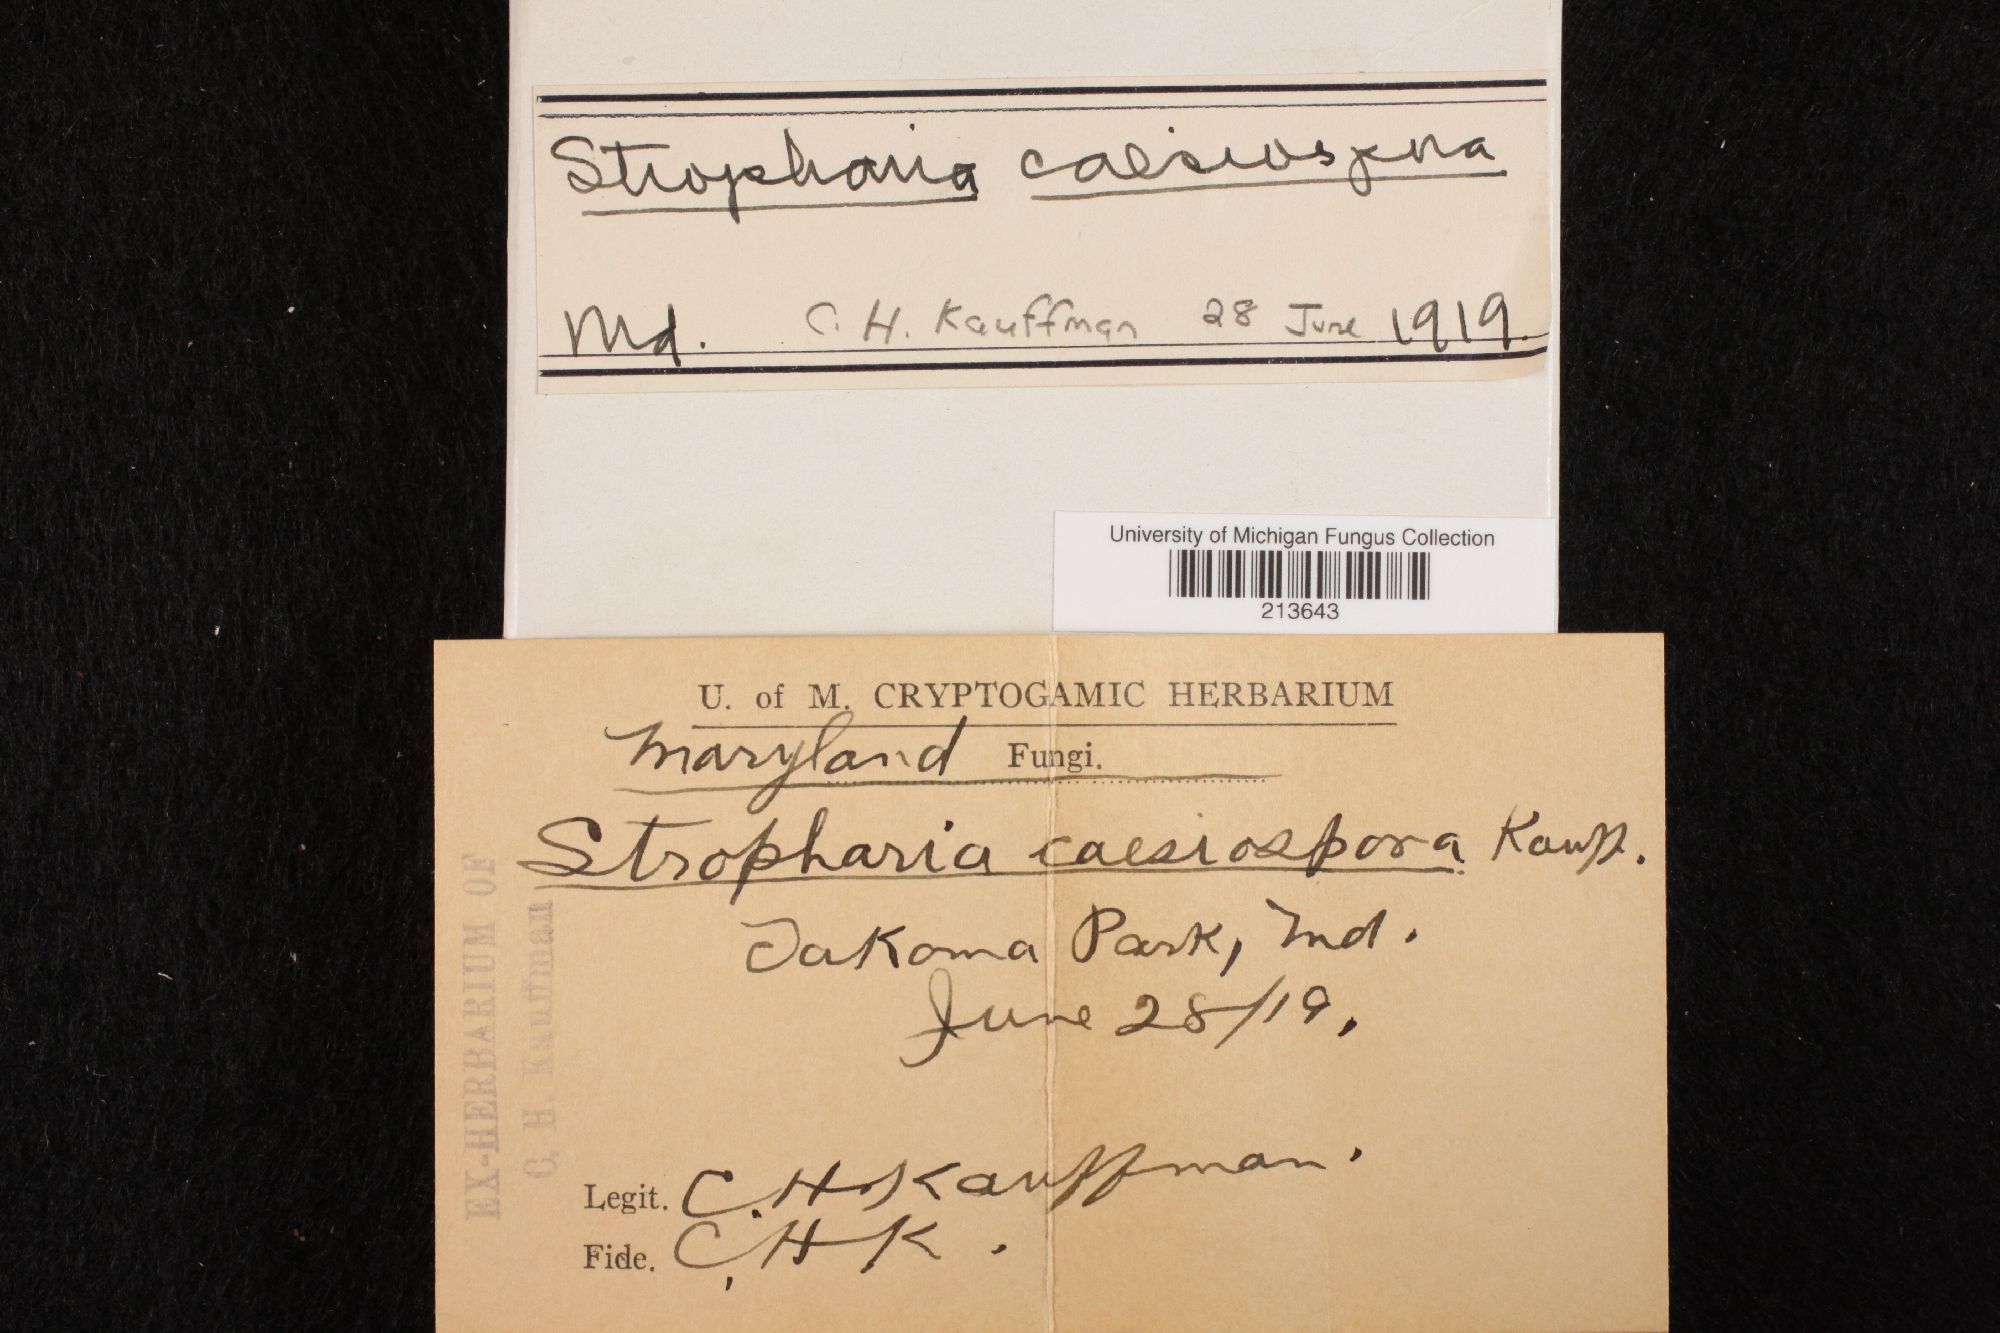 Stropharia caesiospora
Md. C. H. Kauffman 28 June 1919.
University of Michigan Fungus Collection
213643
U. of M. CRYPTOGAMIC HERBARIUM
Maryland Fungi.
Stropharia caesiospora Kauff.
Takoma Park, Md.
June 28/19.
Legit. C. H. Kauffman.
Fide. C. H. K.
EX-HERBARIUM OF
C. H. Kauffman